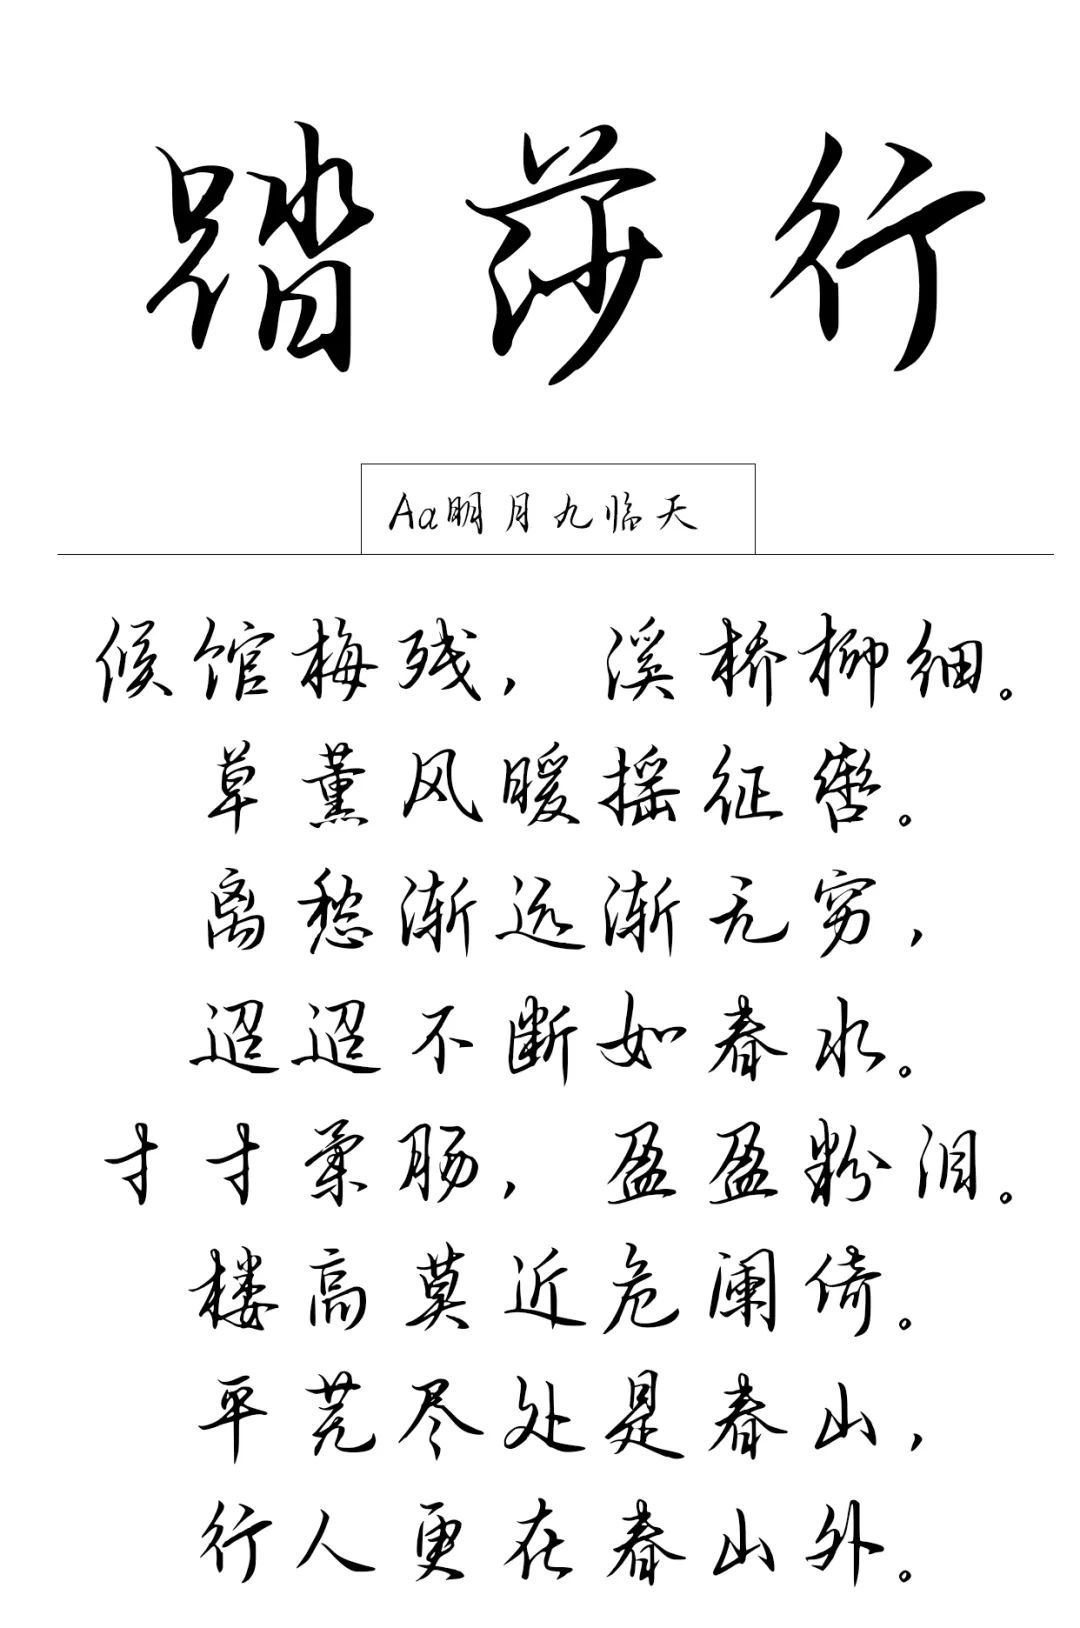 踏莎行
Aa明月九临天
候馆梅残，溪桥柳细。
草薰风暖摇征辔。
离愁渐远渐无穷，
迢迢不断如春水。
寸寸柔肠，盈盈粉泪。
楼高莫近危阑倚。
平芜尽处是春山，
行人更在春山外。